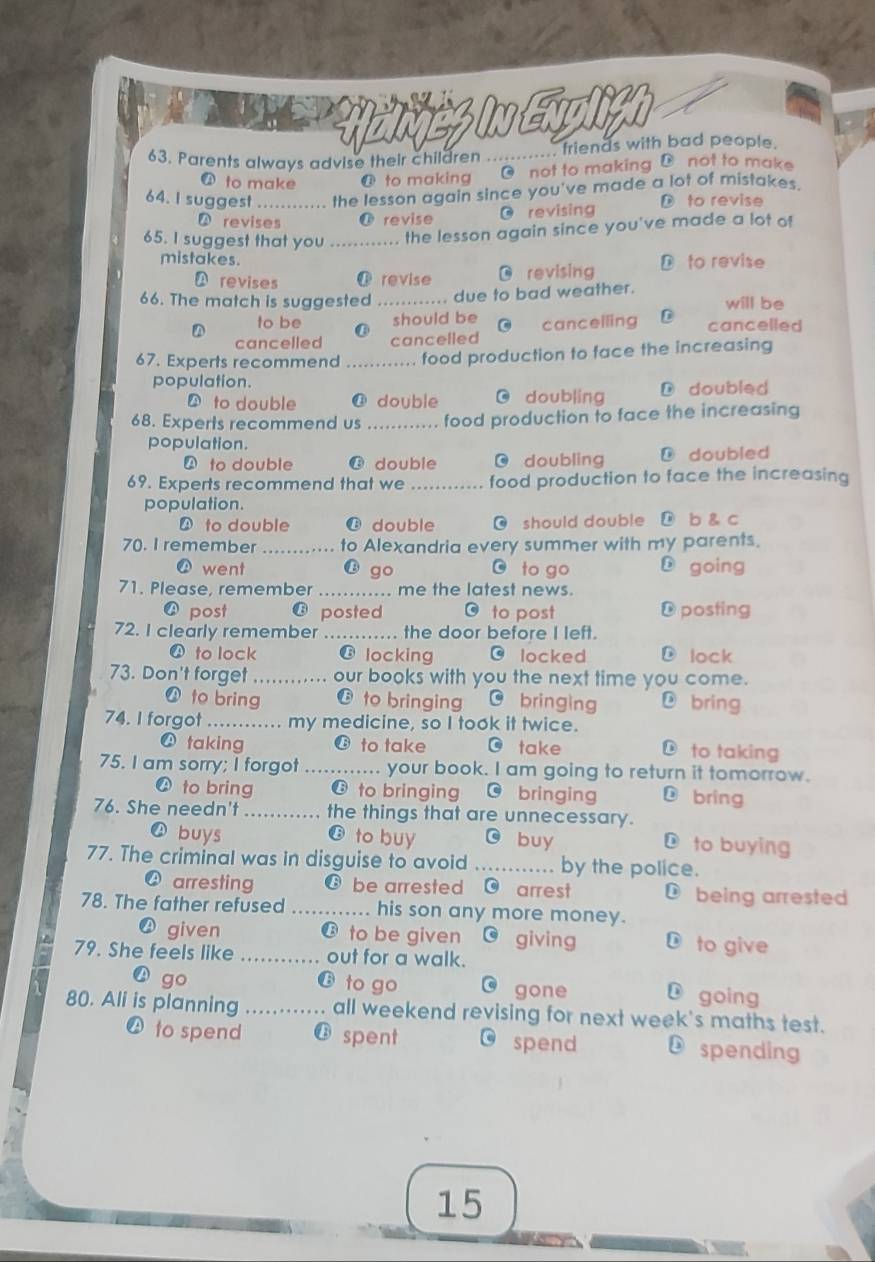 Holmes In English
63. Parents always advise their children ............ friends with bad people.
A to make B to making C not to making D not to make
64. I suggest ............ the lesson again since you've made a lot of mistakes.
A revises B revise C revising D to revise
65. I suggest that you ............ the lesson again since you've made a lot of
mistakes.
A revises B revise C revising D to revise
66. The match is suggested ............ due to bad weather.
A to be cancelled B should be cancelled C cancelling D will be cancelled
67. Experts recommend ............ food production to face the increasing
population.
A to double B double C doubling D doubled
68. Experts recommend us ............ food production to face the increasing
population.
A to double B double C doubling D doubled
69. Experts recommend that we ............ food production to face the increasing
population.
A to double B double C should double D b & c
70. I remember ............ to Alexandria every summer with my parents.
A went B go C to go D going
71. Please, remember ............ me the latest news.
A post B posted C to post D posting
72. I clearly remember ............ the door before I left.
A to lock B locking C locked D lock
73. Don't forget ............ our books with you the next time you come.
A to bring B to bringing C bringing D bring
74. I forgot ............ my medicine, so I took it twice.
A taking B to take C take D to taking
75. I am sorry; I forgot ............ your book. I am going to return it tomorrow.
A to bring B to bringing C bringing D bring
76. She needn't ............ the things that are unnecessary.
A buys B to buy C buy D to buying
77. The criminal was in disguise to avoid ............ by the police.
A arresting B be arrested C arrest D being arrested
78. The father refused ............ his son any more money.
A given B to be given C giving D to give
79. She feels like ............ out for a walk.
A go B to go C gone D going
80. Ali is planning ............ all weekend revising for next week's maths test.
A to spend B spent C spend D spending
15